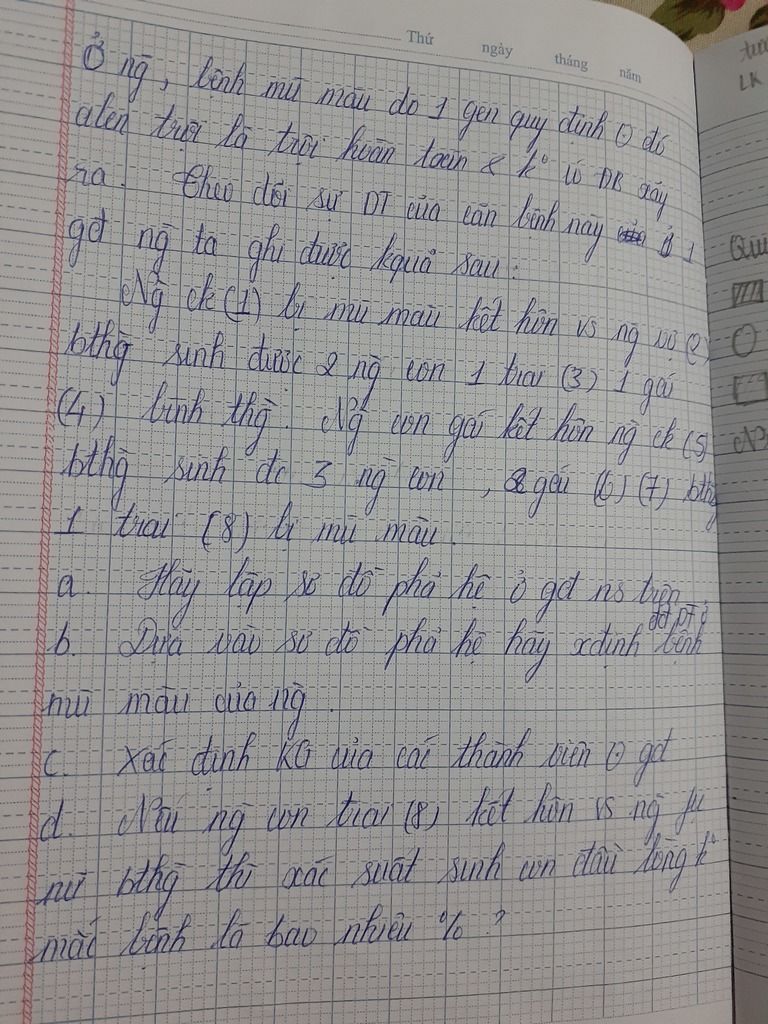 Thứ ngày tháng năm
Ở ng, bệnh mù màu do 1 gen quy định ⊙ đó
alen trội là trội hoàn toàn & k° có ĐB xảy
ra. Theo dõi sự DT của căn bệnh này ở 1
gđ ng ta ghi được kquả sau:
Ng ck (1) bị mù màu kết hôn vs ng vợ (2)
bthg sinh được 2 ng con 1 trai (3) 1 gái
(4) bình thg. Ng con gái kết hôn ng ck (5)
bthg sinh đc 3 ng con, 2 gái (6) (7) bthg
1 trai (8) bị mù màu.
a. Hãy lập sơ đồ phả hệ ở gđ ns trên
b. Dựa vào sơ đồ phả hệ hãy xđịnh đđ DT ở bệnh
mù màu của ng.
c. Xác định KG của các thành viên ⊙ gđ
d. Nếu ng con trai (8) kết hôn vs ng fụ
nữ bthg thì xác suất sinh con đầu lòng k°
mắc bệnh là bao nhiêu %?
LK